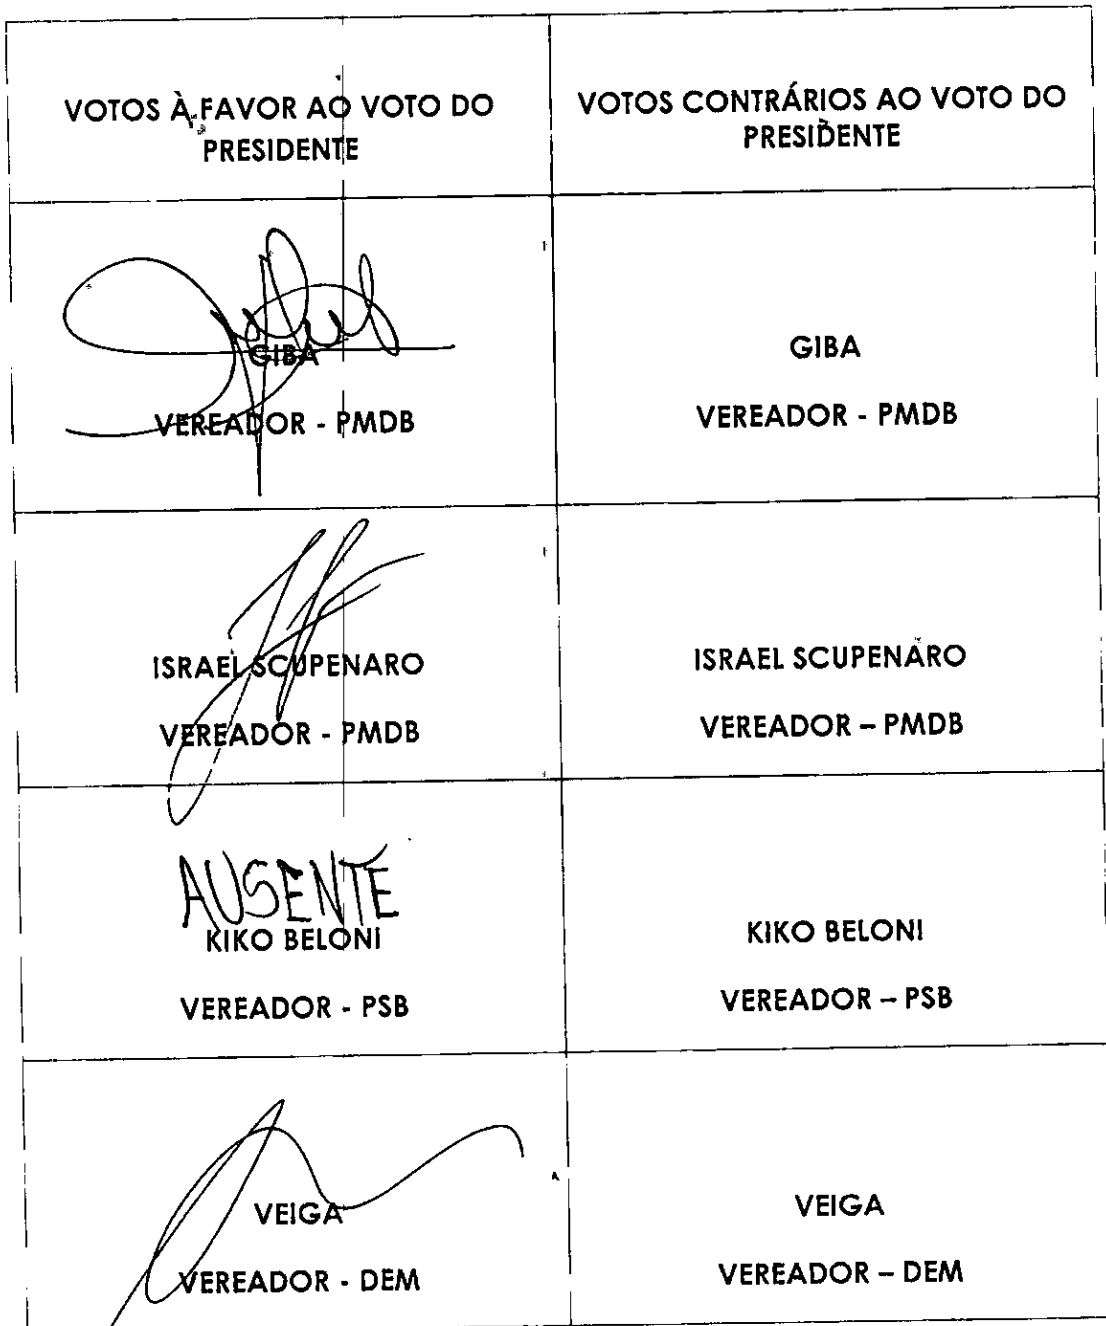 VOTOS À FAVOR AO VOTO DO
PRESIDENTE
VOTOS CONTRÁRIOS AO VOTO DO
PRESIDENTE
GIBA
VEREADOR - PMDB
GIBA
VEREADOR - PMDB
ISRAEL SCUPENARO
VEREADOR - PMDB
ISRAEL SCUPENARO
VEREADOR – PMDB
AUSENTE
KIKO BELONI
VEREADOR - PSB
KIKO BELONI
VEREADOR – PSB
VEIGA
VEREADOR - DEM
VEIGA
VEREADOR – DEM